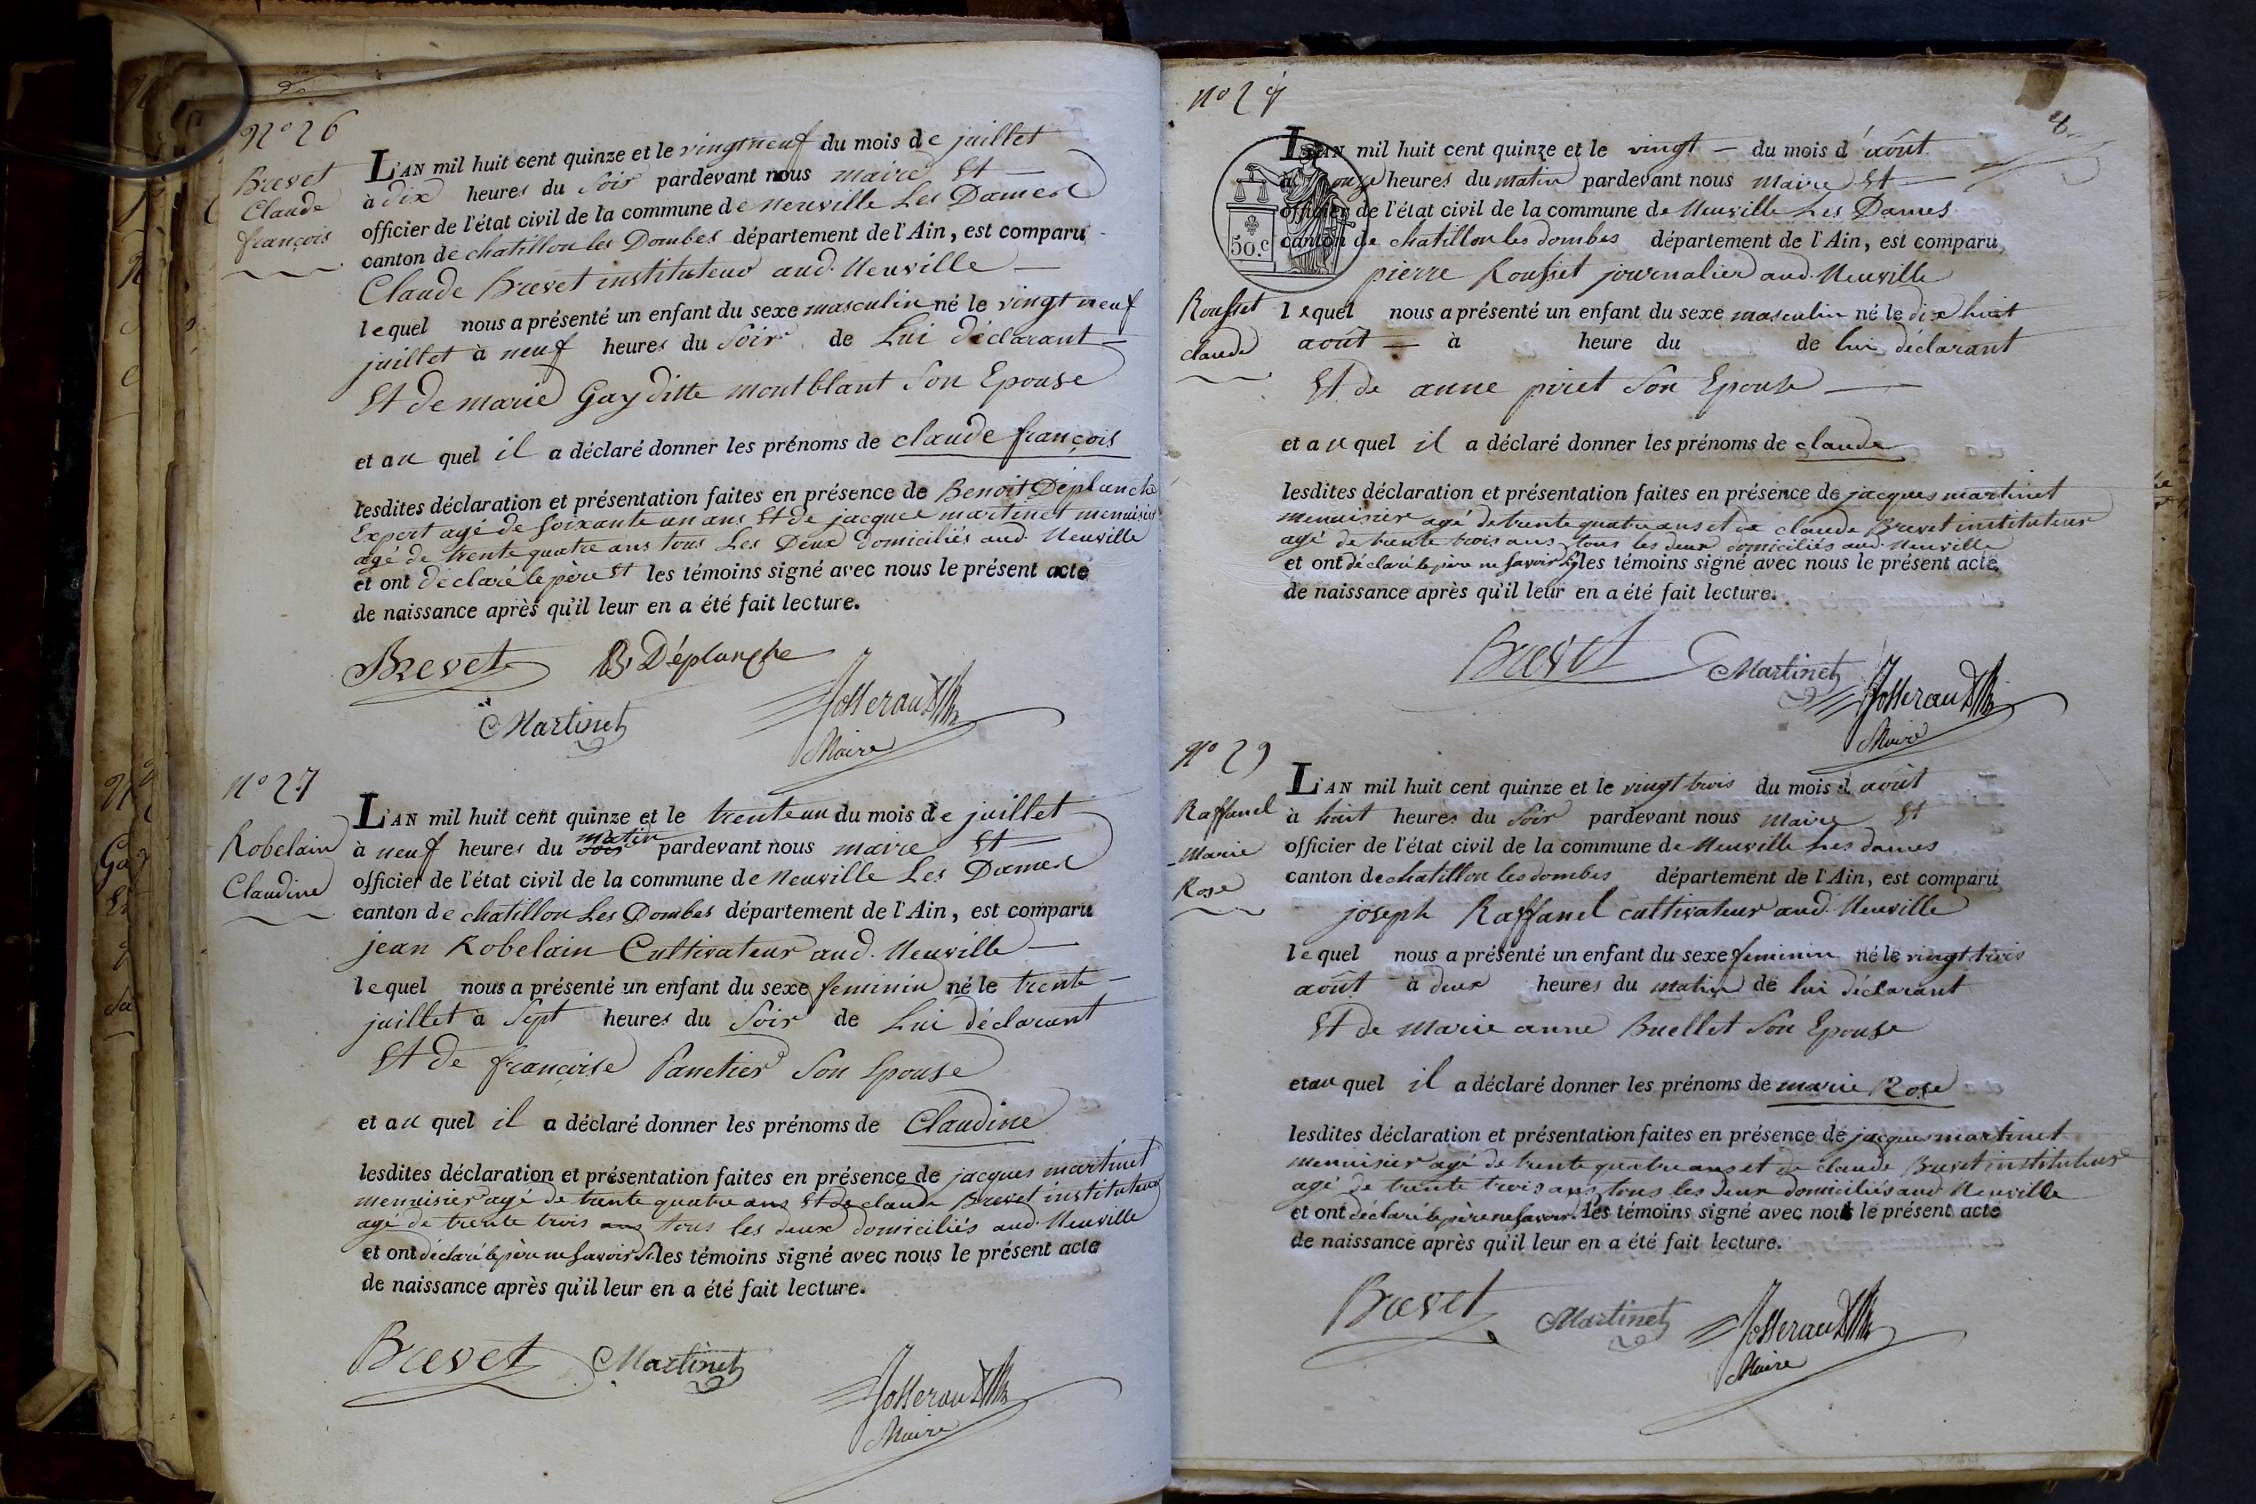 N° 26
Brevet
Claude
françois
L'AN mil huit cent quinze et le vingt neuf du mois de juillet
à dix heures du Soir pardevant nous maire Et
officier de l'état civil de la commune de Neuville Les Dames
canton de chatillon les Dombes département de l'Ain, est comparu
Claude Brevet instituteur aud. Neuville
lequel nous a présenté un enfant du sexe masculin né le vingt neuf
juillet à neuf heures du Soir de Lui déclarant
Et de marie Gay ditte montblant Son Epouse
et au quel il a déclaré donner les prénoms de claude françois
lesdites déclaration et présentation faites en présence de Benoit Déplanche
Expert agé de soixante un ans Et de jacques martinet menuisier
agé de trente quatre ans tous Les Deux domiciliés aud. Neuville
et ont déclaré le père Et les témoins signé avec nous le présent acte
de naissance après qu'il leur en a été fait lecture.
Brevet B. Déplanche
Martinet Josserand
Maire
N° 27
Robelain
Claudine
L'AN mil huit cent quinze et le trente un du mois de juillet
à neuf heures du soir matin pardevant nous maire Et
officier de l'état civil de la commune de Neuville Les Dames
canton de chatillon Les Dombes département de l'Ain, est comparu
jean Robelain Cultivateur aud. Neuville
lequel nous a présenté un enfant du sexe feminin né le trente
juillet à Sept heures du Soir de Lui déclarant
Et de françoise Panetier Son Epouse
et au quel il a déclaré donner les prénoms de Claudine
lesdites déclaration et présentation faites en présence de jacques martinet
menuisier agé de trente quatre ans Et de claude Brevet instituteur
agé de trente trois ans tous les deux domiciliés aud. Neuville
et ont déclaré le père ne savoir les témoins signé avec nous le présent acte
de naissance après qu'il leur en a été fait lecture.
Brevet Martinet
Josserand
Maire
N° 28
50.c
Rousset
claude
L'AN mil huit cent quinze et le vingt du mois d'août
à onze heures du matin pardevant nous Maire Et
officier de l'état civil de la commune de Neuville Les Dames
canton de chatillon les dombes département de l'Ain, est comparu
pierre Rousset journalier aud. Neuville
lequel nous a présenté un enfant du sexe masculin né le dix huit
août à heure du de lui déclarant
Et de anne piret Son Epouse
et au quel il a déclaré donner les prénoms de claude
lesdites déclaration et présentation faites en présence de jacques martinet
menuisier agé de trente quatre ans et de claude Brevet instituteur
agé de trente trois ans tous les deux domiciliés aud. Neuville
et ont déclaré le père ne savoir les témoins signé avec nous le présent acte
de naissance après qu'il leur en a été fait lecture.
Brevet Martinet Josserand
Maire
N° 29
Raffanel
Marie
Rose
L'AN mil huit cent quinze et le vingt trois du mois d'août
à huit heures du Soir pardevant nous Maire Et
officier de l'état civil de la commune de Neuville Les dames
canton de chatillon les dombes département de l'Ain, est comparu
joseph Raffanel cultivateur aud. Neuville
lequel nous a présenté un enfant du sexe feminin né le vingt trois
août à deux heures du matin de lui déclarant
Et de Marie anne Buellet Son Epouse
et au quel il a déclaré donner les prénoms de marie Rose
lesdites déclaration et présentation faites en présence de jacques martinet
menuisier agé de trente quatre ans et de claude Brevet instituteur
agé de trente trois ans tous les deux domiciliés aud. Neuville
et ont déclaré le père ne savoir les témoins signé avec nous le présent acte
de naissance après qu'il leur en a été fait lecture.
Brevet Martinet Josserand
Maire